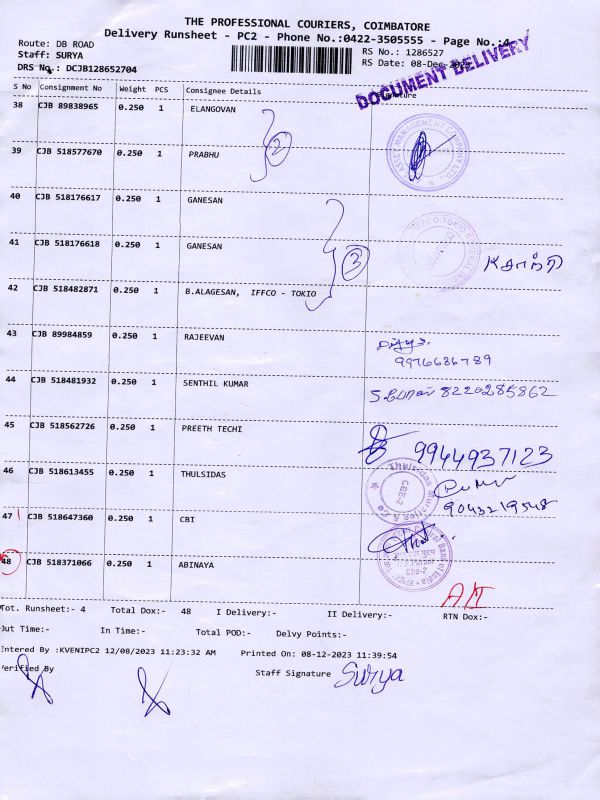 THE PROFESSIONAL COURIERS, COIMBATORE
Delivery Runsheet - PC2 - Phone No.:0422-3505555 - Page No.:4
Route: DB ROAD
Staff: SURYA
DRS No.: DCJB128652704
RS No.: 1286527
RS Date: 08-Dec-
DOCUMENT DELIVERY
S No Consignment No Weight PCS Consignee Details Signature
38 CJB 89838965 0.250 1 ELANGOVAN
39 CJB 518577670 0.250 1 PRABHU
2
40 CJB 518176617 0.250 1 GANESAN
41 CJB 518176618 0.250 1 GANESAN
3
42 CJB 518482871 0.250 1 B.ALAGESAN, IFFCO - TOKIO
43 CJB 89984859 0.250 1 RAJEEVAN
9976686789
44 CJB 518481932 0.250 1 SENTHIL KUMAR 8220285862
45 CJB 518562726 0.250 1 PREETH TECHI 9944937123
46 CJB 518613455 0.250 1 THULSIDAS
9043219548
47 CJB 518647360 0.250 1 CBI
48 CJB 518371066 0.250 1 ABINAYA
Tot. Runsheet:- 4 Total Dox:- 48 I Delivery:- II Delivery:- RTN Dox:-
Out Time:- In Time:- Total POD:- Delvy Points:-
Entered By :KVENIPC2 12/08/2023 11:23:32 AM Printed On: 08-12-2023 11:39:54
Verified By Staff Signature Surya